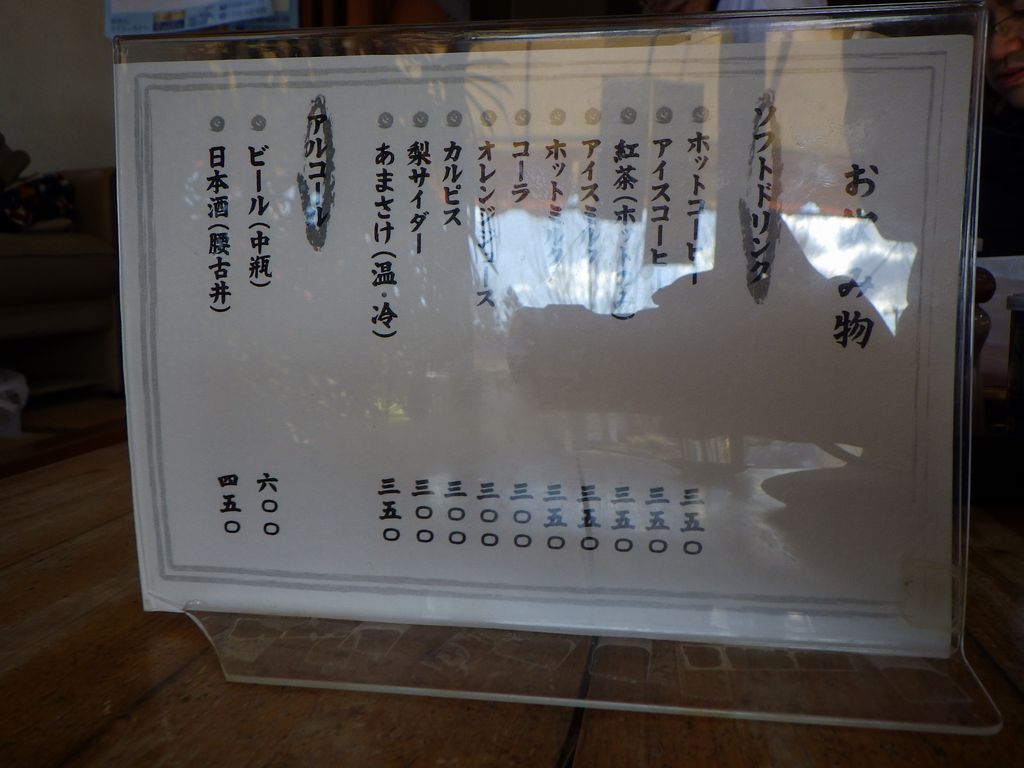 お飲み物
ソフトドリンク
ホットコーヒー 三五〇
アイスコーヒー 三五〇
紅茶(ホット 三五〇
アイスミルク 三五〇
ホットミルク 三五〇
コーラ 三〇〇
オレンジジュース 三〇〇
カルピス 三〇〇
梨サイダー 三〇〇
あまさけ(温・冷) 三五〇
アルコール
ビール(中瓶) 六〇〇
日本酒(腰古井) 四五〇